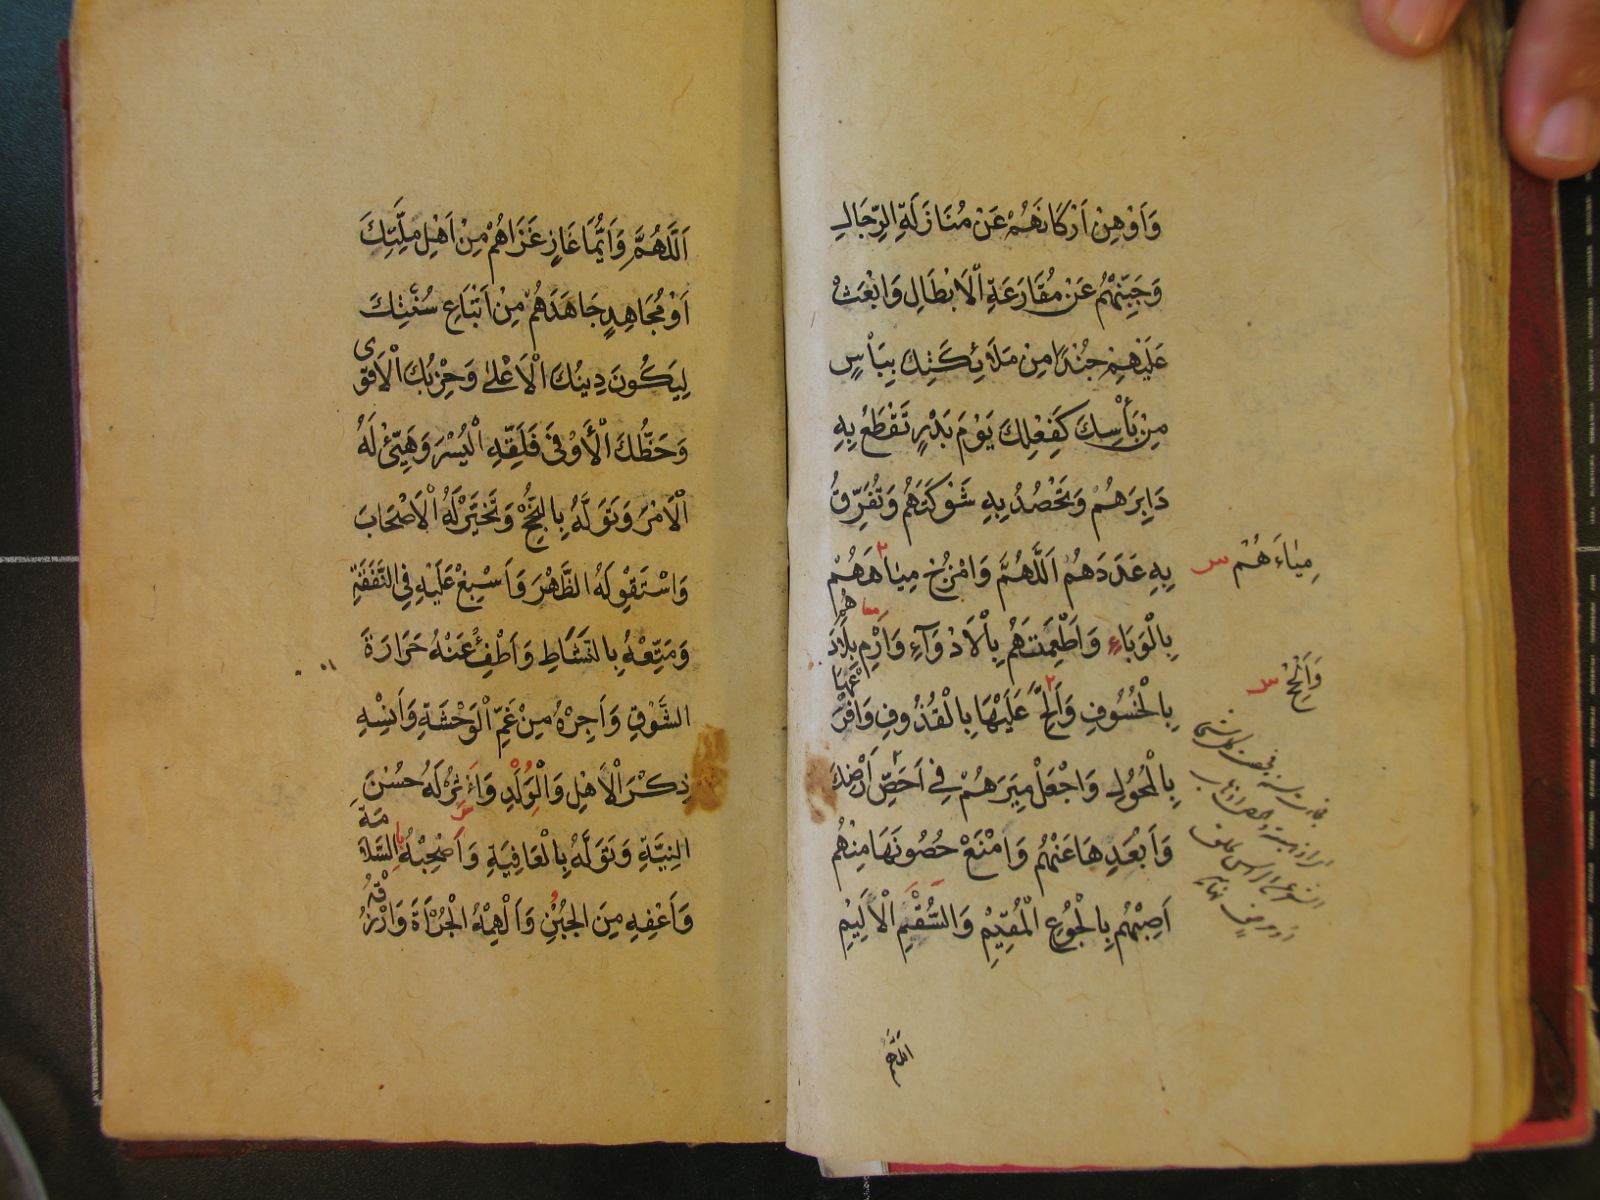 وَاَوْهِنْ اَرْكَانَهُمْ عَنْ مُنَازَلَةِ الرِّجَالِ
وَجَبِّنْهُمْ عَنْ مُقَارَعَةِ الْاَبْطَالِ وَابْعَثْ
عَلَيْهِمْ جُنْدًا مِنْ مَلَائِكَتِكَ بِبَأْسٍ
مِنْ بَأْسِكَ كَفِعْلِكَ يَوْمَ بَدْرٍ تَقْطَعُ بِهِ
دَابِرَهُمْ وَتَحْصُدُ بِهِ شَوْكَتَهُمْ وَتُفَرِّقُ
بِهِ عَدَدَهُمْ اَللَّهُمَّ وَامْزُجْ مِيَاهَهُمْ
مِيَاءَهُمْ
بِالْوَبَاءِ وَاَطْعِمَتَهُمْ بِالْاَدْوَآءِ وَارْمِ بِلَادَهُمْ
بِالْخُسُوفِ وَاَلِحَّ عَلَيْهَا بِالْقُذُوفِ وَافْرَعْهَا
وَاَلْحِحْ
بِالْمُحُولِ وَاجْعَلْ مِيَرَهُمْ فِي اَحَصِّ اَرْضِكَ
وَاَبْعَدِهَا عَنْهُمْ وَامْنَعْ حُصُونَهَا مِنْهُمْ
اَصِبْهُمْ بِالْجُوعِ الْمُقِيْمِ وَالسُّقْمِ الْاَلِيْمِ
اللَّهُمَّ
اَللَّهُمَّ وَاَيُّمَا غَازٍ غَزَاهُمْ مِنْ اَهْلِ مِلَّتِكَ
اَوْ مُجَاهِدٍ جَاهَدَهُمْ مِنْ اَتْبَاعِ سُنَّتِكَ
لِيَكُونَ دِينُكَ الْاَعْلٰى وَحِزْبُكَ الْاَقْوى
وَحَظُّكَ الْأَوْفٰى فَلَقِّهِ الْيُسْرَ وَهَيِّئْ لَهُ
الْاَمْرَ وَتَوَلَّهُ بِالنُّجْحِ وَتَخَيَّرْ لَهُ الْاَصْحَابَ
وَاسْتَقْوِ لَهُ الظَّهْرَ وَاَسْبِغْ عَلَيْهِ فِي النَّفَقَةِ
وَمَتِّعْهُ بِالنَّشَاطِ وَاَطْفِئْ عَنْهُ حَرَارَةَ
الشَّوْقِ وَاَجِرْهُ مِنْ غَمِّ الْوَحْشَةِ وَاَنْسِهِ
ذِكْرَ الْاَهْلِ وَالْوَلَدِ وَأْثُرْ لَهُ حُسْنَ
النِيَّةِ وَتَوَلَّهُ بِالْعَافِيَةِ وَاَصْحِبْهُ السَّلَامَةَ
وَاَعْفِهِ مِنَ الْجُبْنِ وَاَلْهِمْهُ الْجُرْاَةَ وَارْزُقْهُ